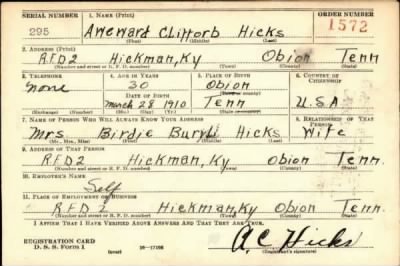 SERIAL NUMBER 1. NAME (Print) ORDER NUMBER
295 Aweward Cliftorb Hicks 1572
(First) (Middle) (Last)
2. ADDRESS (Print)
RFD2 Hickman, Ky Obion Tenn
(Number and street or R. F. D. number) (Town) (County) (State)
3. TELEPHONE 4. AGE IN YEARS 5. PLACE OF BIRTH 6. COUNTRY OF CITIZENSHIP
none 30 Obion
DATE OF BIRTH (Town or county)
March 28 1910 Tenn U.S.A
(Exchange) (Number) (Mo.) (Day) (Yr.) (State or country)
7. NAME OF PERSON WHO WILL ALWAYS KNOW YOUR ADDRESS 8. RELATIONSHIP OF THAT PERSON
Mrs Birdie Hicks Wife
(Mr., Mrs., Miss) (First) (Middle) (Last)
9. ADDRESS OF THAT PERSON
RFD2 Hickman, Ky Obion Tenn.
(Number and street or R. F. D. number) (Town) (County) (State)
10. EMPLOYER'S NAME
Self
11. PLACE OF EMPLOYMENT OR BUSINESS
RFD2 Hickman, Ky Obion Tenn.
(Number and street or R. F. D. number) (Town) (County) (State)
I AFFIRM THAT I HAVE VERIFIED ABOVE ANSWERS AND THAT THEY ARE TRUE.
REGISTRATION CARD
D. S. S. Form 1 (over) 16-17105 A.C. Hicks
(Registrant's signature)